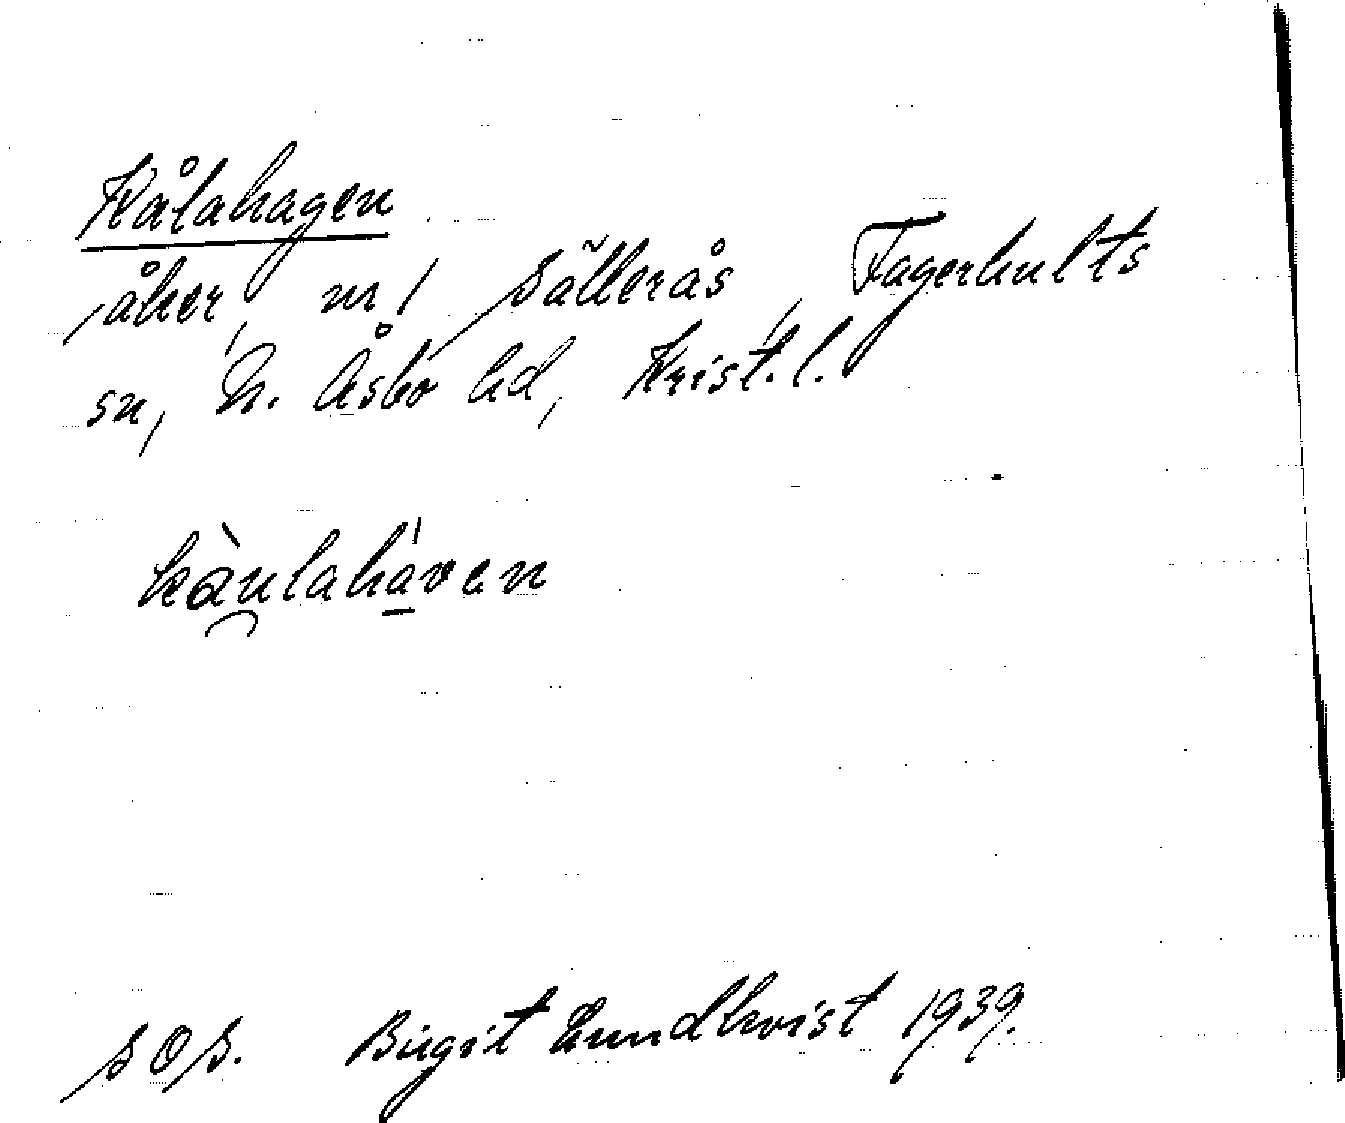 Kålahagen
åker, nr 1 Sållerås, Fagerhults
sn, N. Åsbo hd, Krist. l.
kàulahávan
S O S. Birgit Lundkvist 1939.